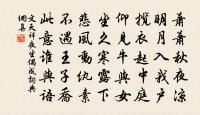 蕭蕭秋夜涼
明月入我戶
攬衣起中庭
仰見牛與女
坐久寒露下
悲風動紈素
不遇王子喬
此意誰與語
文天祥夜坐偶成詞典
網